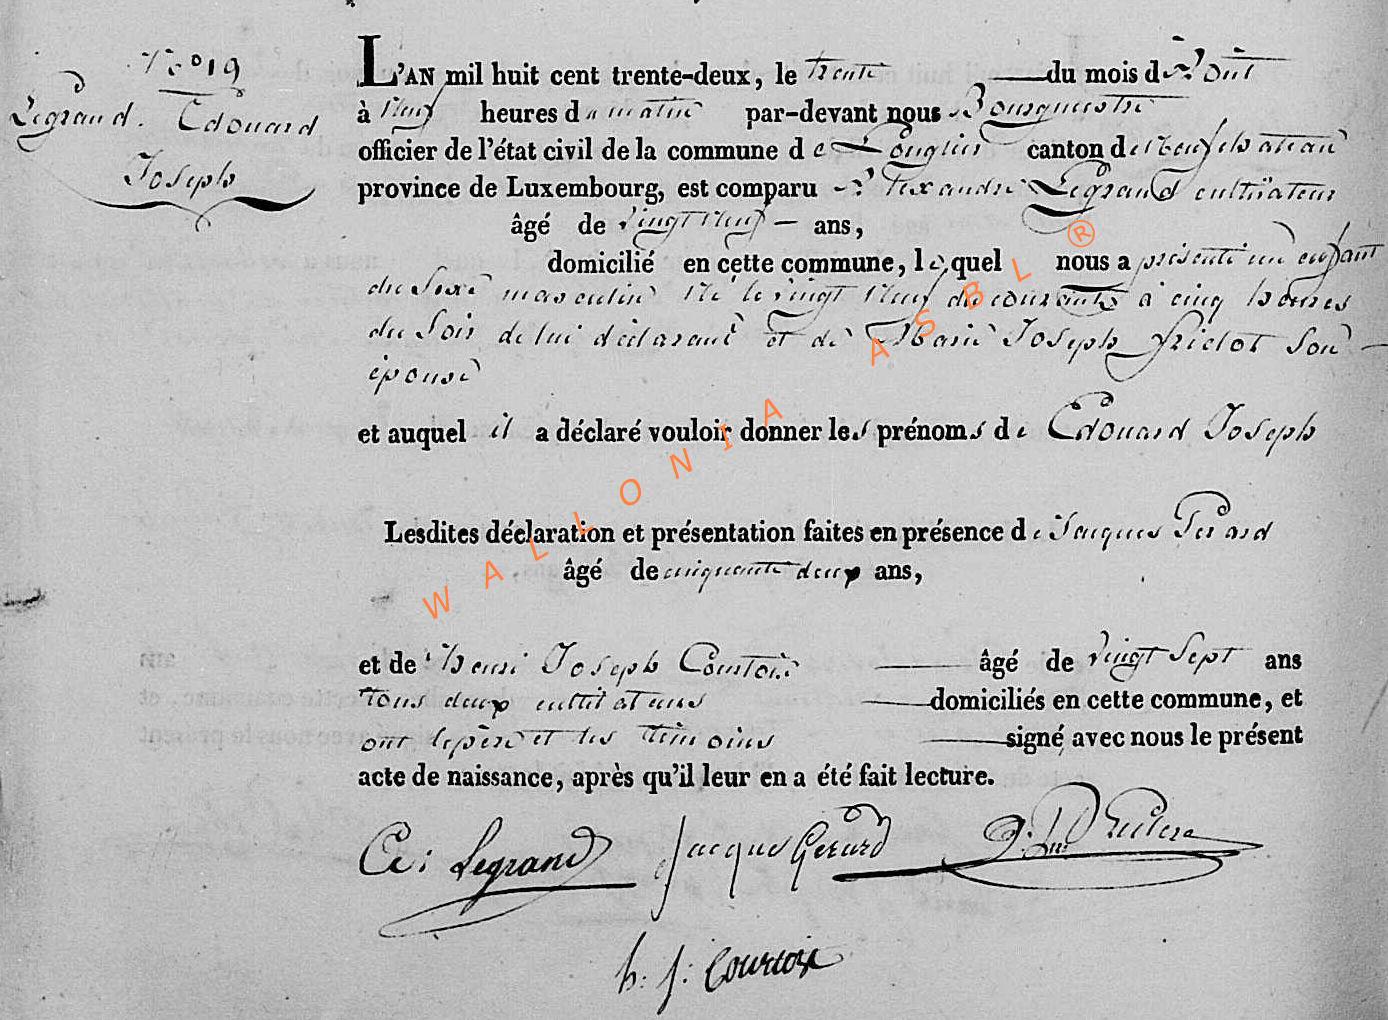 N° 19
Legrand. Edouard
Joseph
L'AN mil huit cent trente-deux, le trente du mois d'Aout
à neuf heures du matin par-devant nous Bourguestre
officier de l'état civil de la commune de Longlier canton de Neufchateau
province de Luxembourg, est comparu Alexandre Legrand cultivateur
âgé de vingt neuf ans,
domicilié en cette commune, lequel nous a présenté un enfant
du Sexe masculin né le vingt neuf du courant à cinq heures
du Soir de lui déclarant et de Marie Joseph fridot Son
épouse
et auquel il a déclaré vouloir donner les prénoms de Edouard Joseph
Lesdites déclaration et présentation faites en présence de Jacques Gerard
âgé de cinquante deux ans,
et de henri Joseph Courtois âgé de vingt Sept ans
tous deux cultivateurs domiciliés en cette commune, et
ont le père et les témoins signé avec nous le présent
acte de naissance, après qu'il leur en a été fait lecture.
Legrand Jacque Gerard
h: j: Courtois
WALLONIA ASBL ®